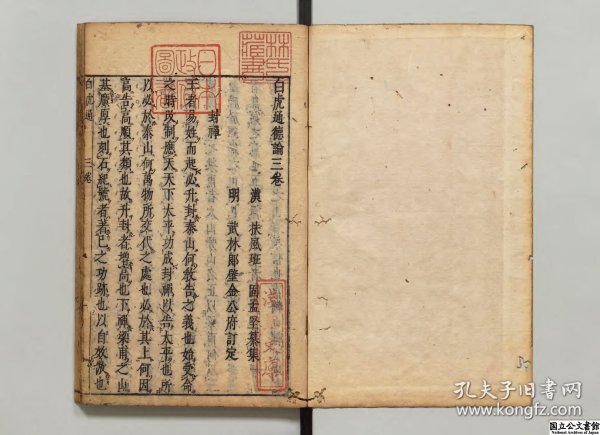 白虎通德論三卷
漢 扶風班固孟堅纂集
明 武林郎璧金公府訂定
封禪
王者易姓而起必升封泰山何教告之義也始受命
之時改制應天天下太平功成封禪以告太平也所
以必於泰山何萬物所交代之處也必於其上何因
高告高順其類也故升封者增高也下禪梁甫之山
基廣厚也刻石紀號者著己之功跡也以自效放也
白虎通 三卷
林氏藏書
日本政府圖書
孔夫子旧书网
www.kongfz.com
国立公文書館
National Archives of Japan